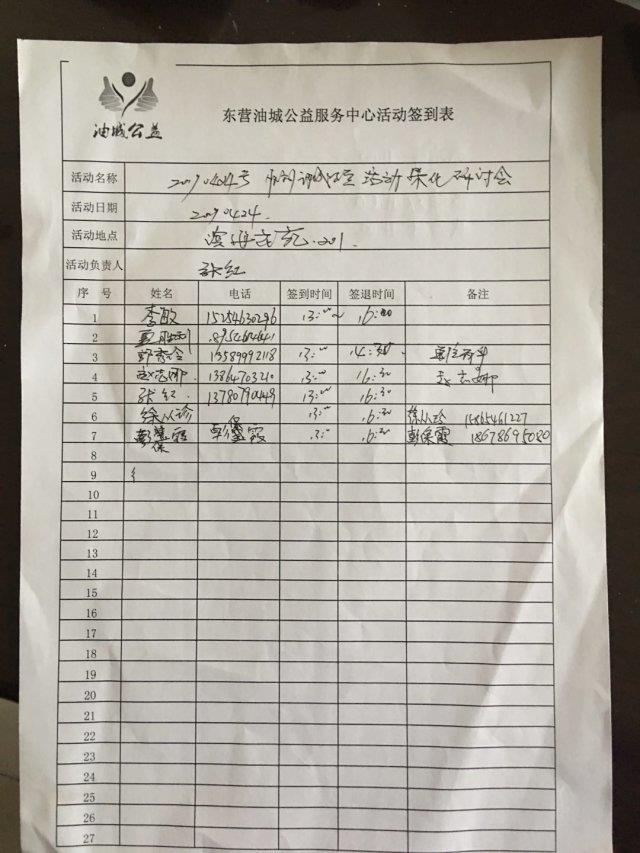 油城公益
东营油城公益服务中心活动签到表
活动名称 20190424号 活动 研讨会
活动日期 20190424.
活动地点 201.
活动负责人 张红
序 号 姓名 电话 签到时间 签退时间 备注
1 李敏 15254630296 13:00~ 16:00
2
3 13589992118 13:00 14:30
4 赵志娜 13864703210 13:00 16:30 赵志娜
5 张红. 13:00 16:30
6 徐从珍 13:00 16:30 徐从珍
7 彭保霞 彭保霞 13:00 16:30 彭保霞 18678695080
8
9
10
11
12
13
14
15
16
17
18
19
20
21
22
23
24
25
26
27